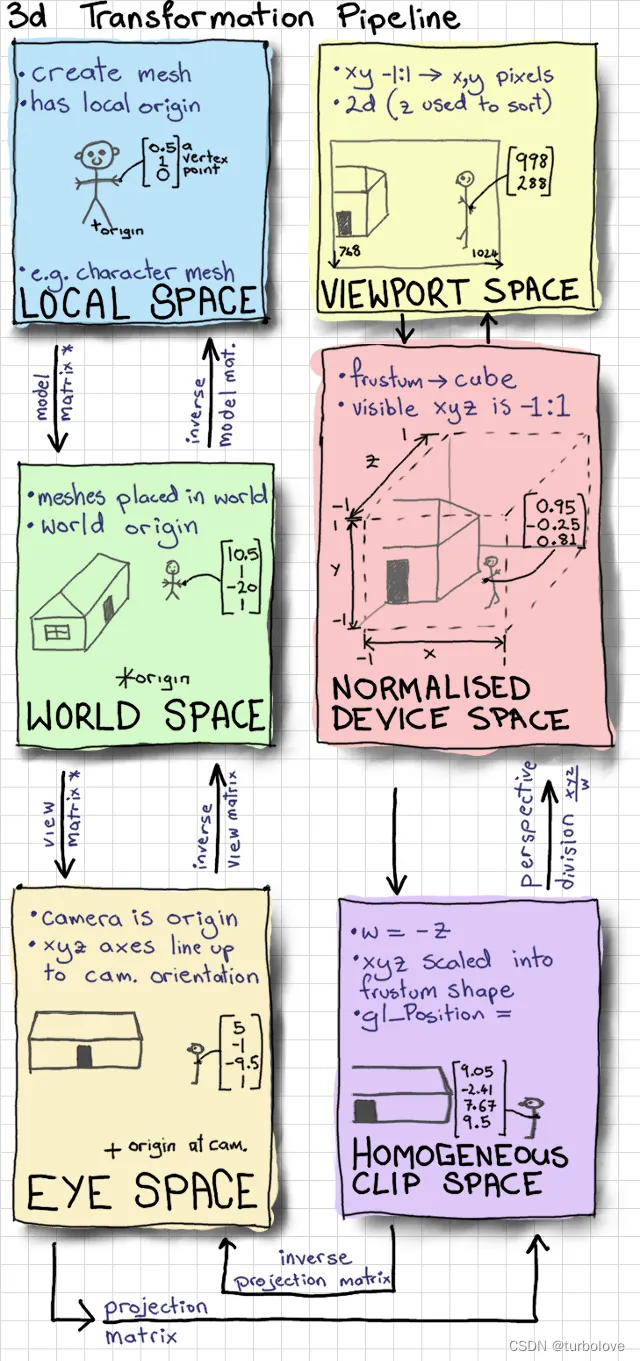 3d Transformation Pipeline
• create mesh
• has local origin
[0.5
1
0]
a
vertex
point
+origin
• e.g. character mesh
LOCAL SPACE
model
matrix *
inverse
model mat.
• meshes placed in world
• world origin
[10.5
1
-20
1]
*origin
WORLD SPACE
view
matrix *
inverse
view matrix
• camera is origin
• xyz axes line up
to cam. orientation
[5
-1
-9.5
1]
+ origin at cam.
EYE SPACE
projection
matrix
inverse
projection matrix
• w = -z
• xyz scaled into
frustum shape
• gl_Position =
[9.05
-2.41
7.67
9.5]
HOMOGENEOUS
CLIP SPACE
perspective
division xyz/w
• frustum → cube
• visible xyz is -1:1
1
z
-1
1
y
-1
-1
x
[0.95
-0.25
0.81]
NORMALISED
DEVICE SPACE
• xy -1:1 → x,y pixels
• 2d (z used to sort)
[998
288]
768
1024
VIEWPORT SPACE
CSDN @turbolove